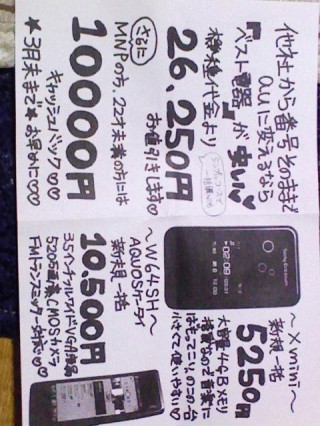 他社から番号そのままで
auに変えるなら
『ベスト電器』が安い
機種代金より
26,250円
お値引きします♡
さらに
MNPの方、22才未満の方には
10000円
キャッシュバック♡♡
★3月末まで★お早めに♡♡
～Xmini～
新規 一括
5250円
大容量4GBメモリ
搭載なので音楽に
Sony Ericsson
02:09
～W64SH～
AQUOSケータイ
新規 一括
10,500円
3.5インチフルワイドVGA液晶
520万画素CMOSカメラ
FMトランスミッター